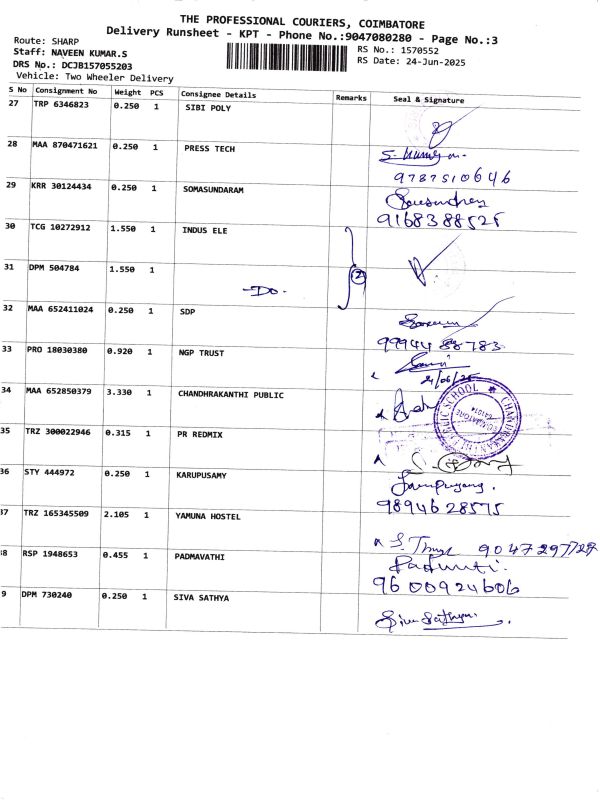 THE PROFESSIONAL COURIERS, COIMBATORE
Delivery Runsheet - KPT - Phone No.:9047080280 - Page No.:3
Route: SHARP
Staff: NAVEEN KUMAR.S
DRS No.: DCJB157055203
Vehicle: Two Wheeler Delivery
RS No.: 1570552
RS Date: 24-Jun-2025
S No Consignment No Weight PCS Consignee Details Remarks Seal & Signature
27 TRP 6346823 0.250 1 SIBI POLY
28 MAA 870471621 0.250 1 PRESS TECH
9787510646
29 KRR 30124434 0.250 1 SOMASUNDARAM
9168388525
30 TCG 10272912 1.550 1 INDUS ELE
31 DPM 504784 1.550 1
-Do- 2
32 MAA 652411024 0.250 1 SDP
9994488783
33 PRO 18030380 0.920 1 NGP TRUST
24/06/25
34 MAA 652850379 3.330 1 CHANDHRAKANTHI PUBLIC
35 TRZ 300022946 0.315 1 PR REDMIX
36 STY 444972 0.250 1 KARUPUSAMY
9894628575
37 TRZ 165345509 2.105 1 YAMUNA HOSTEL
9047297729
38 RSP 1948653 0.455 1 PADMAVATHI
9600924606
9 DPM 730240 0.250 1 SIVA SATHYA
Siva Sathya.